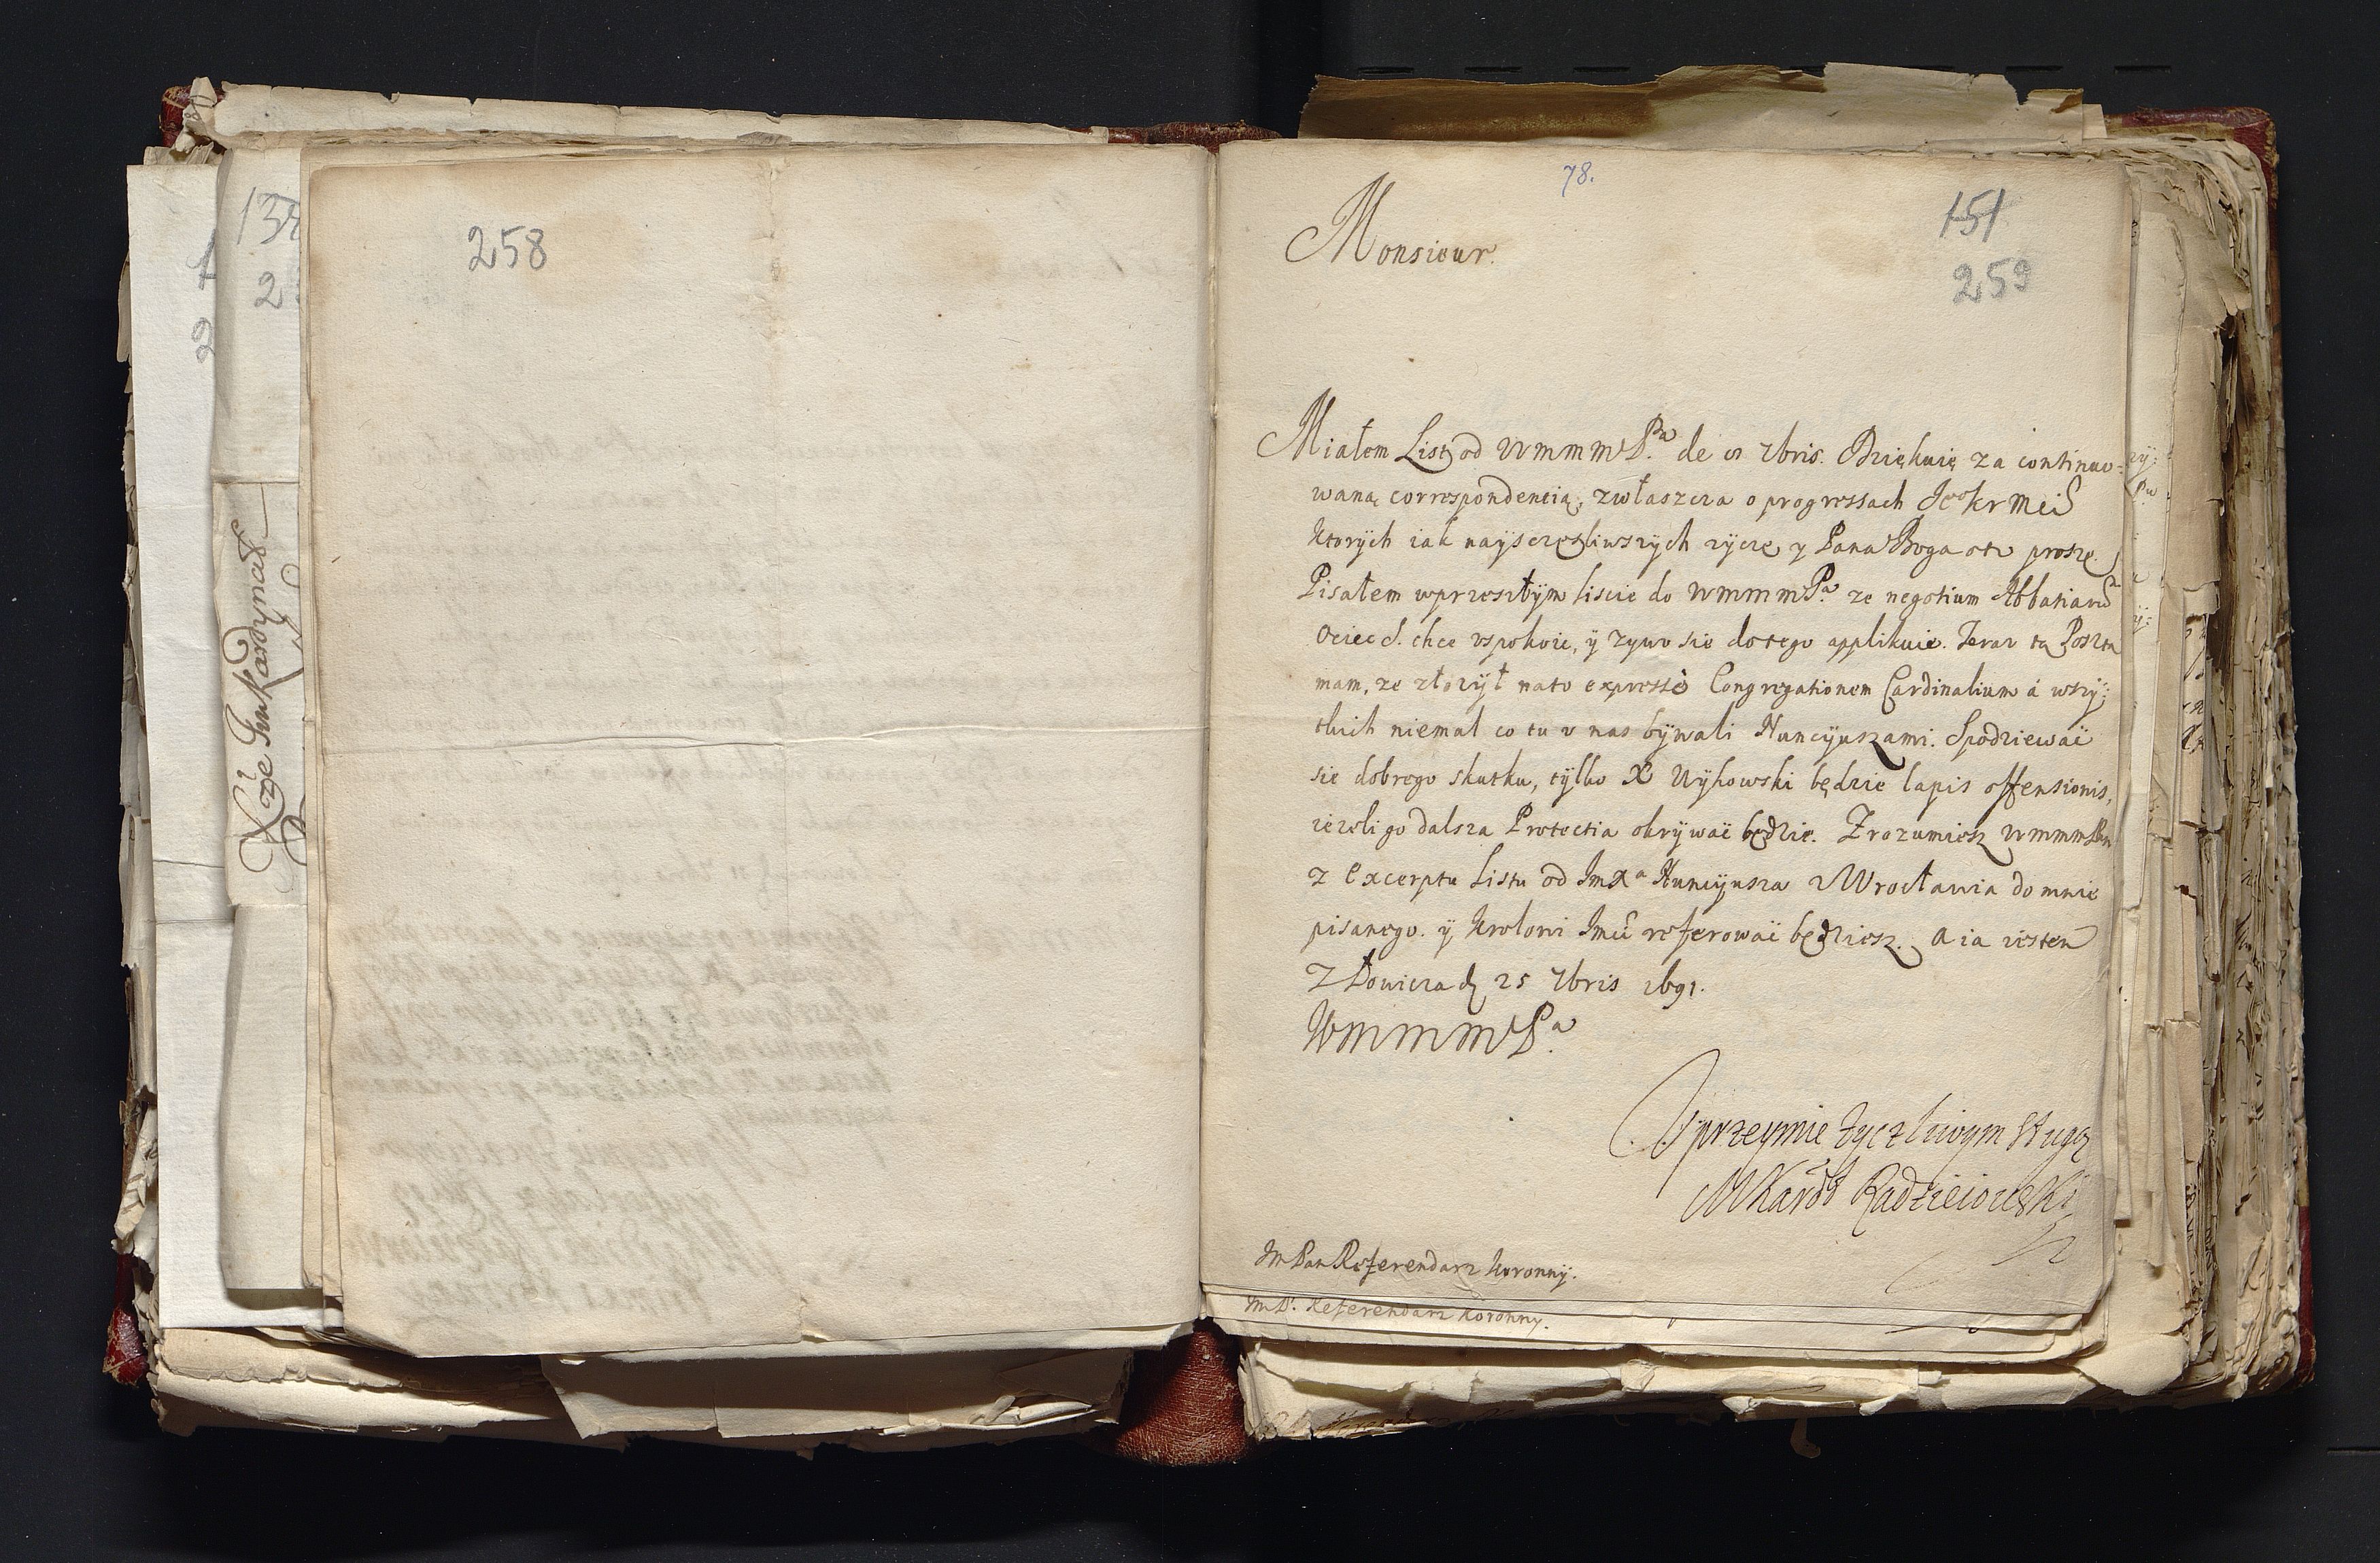 258
Xże Jm Kardynał
78.
151
259
Monsieur.
Miałem List od WMMMP.ᵃ de 7bris. Dziękuię za continuo=
waną correspondentią, zwłaszcza o progressach Jᵒ Kr Mci
ktorych iak nayszczęsliwszych zyczę y Pana Boga oto proszę.
Pisałem wprzeszłym liscie do WMMMP.ᵃ ze negotium Abbatiarū
Ociec S. chce uspokoić, ÿ zywo się dotego applikuie. Teraz tą Posztą
mam, ze złozÿł nato expressè Congregationem Cardinalium á wszÿ=
tkich niemal co tu u nas bÿwali Nuncÿuszami. Spodziewać
się dobrego skutku, tÿlko X Wÿhowski będzie lapis offensionis,
iezeli go dalsza Protectia okrÿwać będzie. Zrozumiesz WMMMPan
z Excerptu Listu od JmXᵃ Nuncÿusza z Wrocławia do mnie
pisanego. ÿ Krolowi Jmci referować będziesz. A ia iestem
Z Łowicza d 25 7bris 1691.
WMMMP.ᵃ
Uprzeymie zyczliwym sługą
MKardł Radzieiowski
Jm Pan Referendarz Koronnÿ.
JmP. Referendarz Koronny.